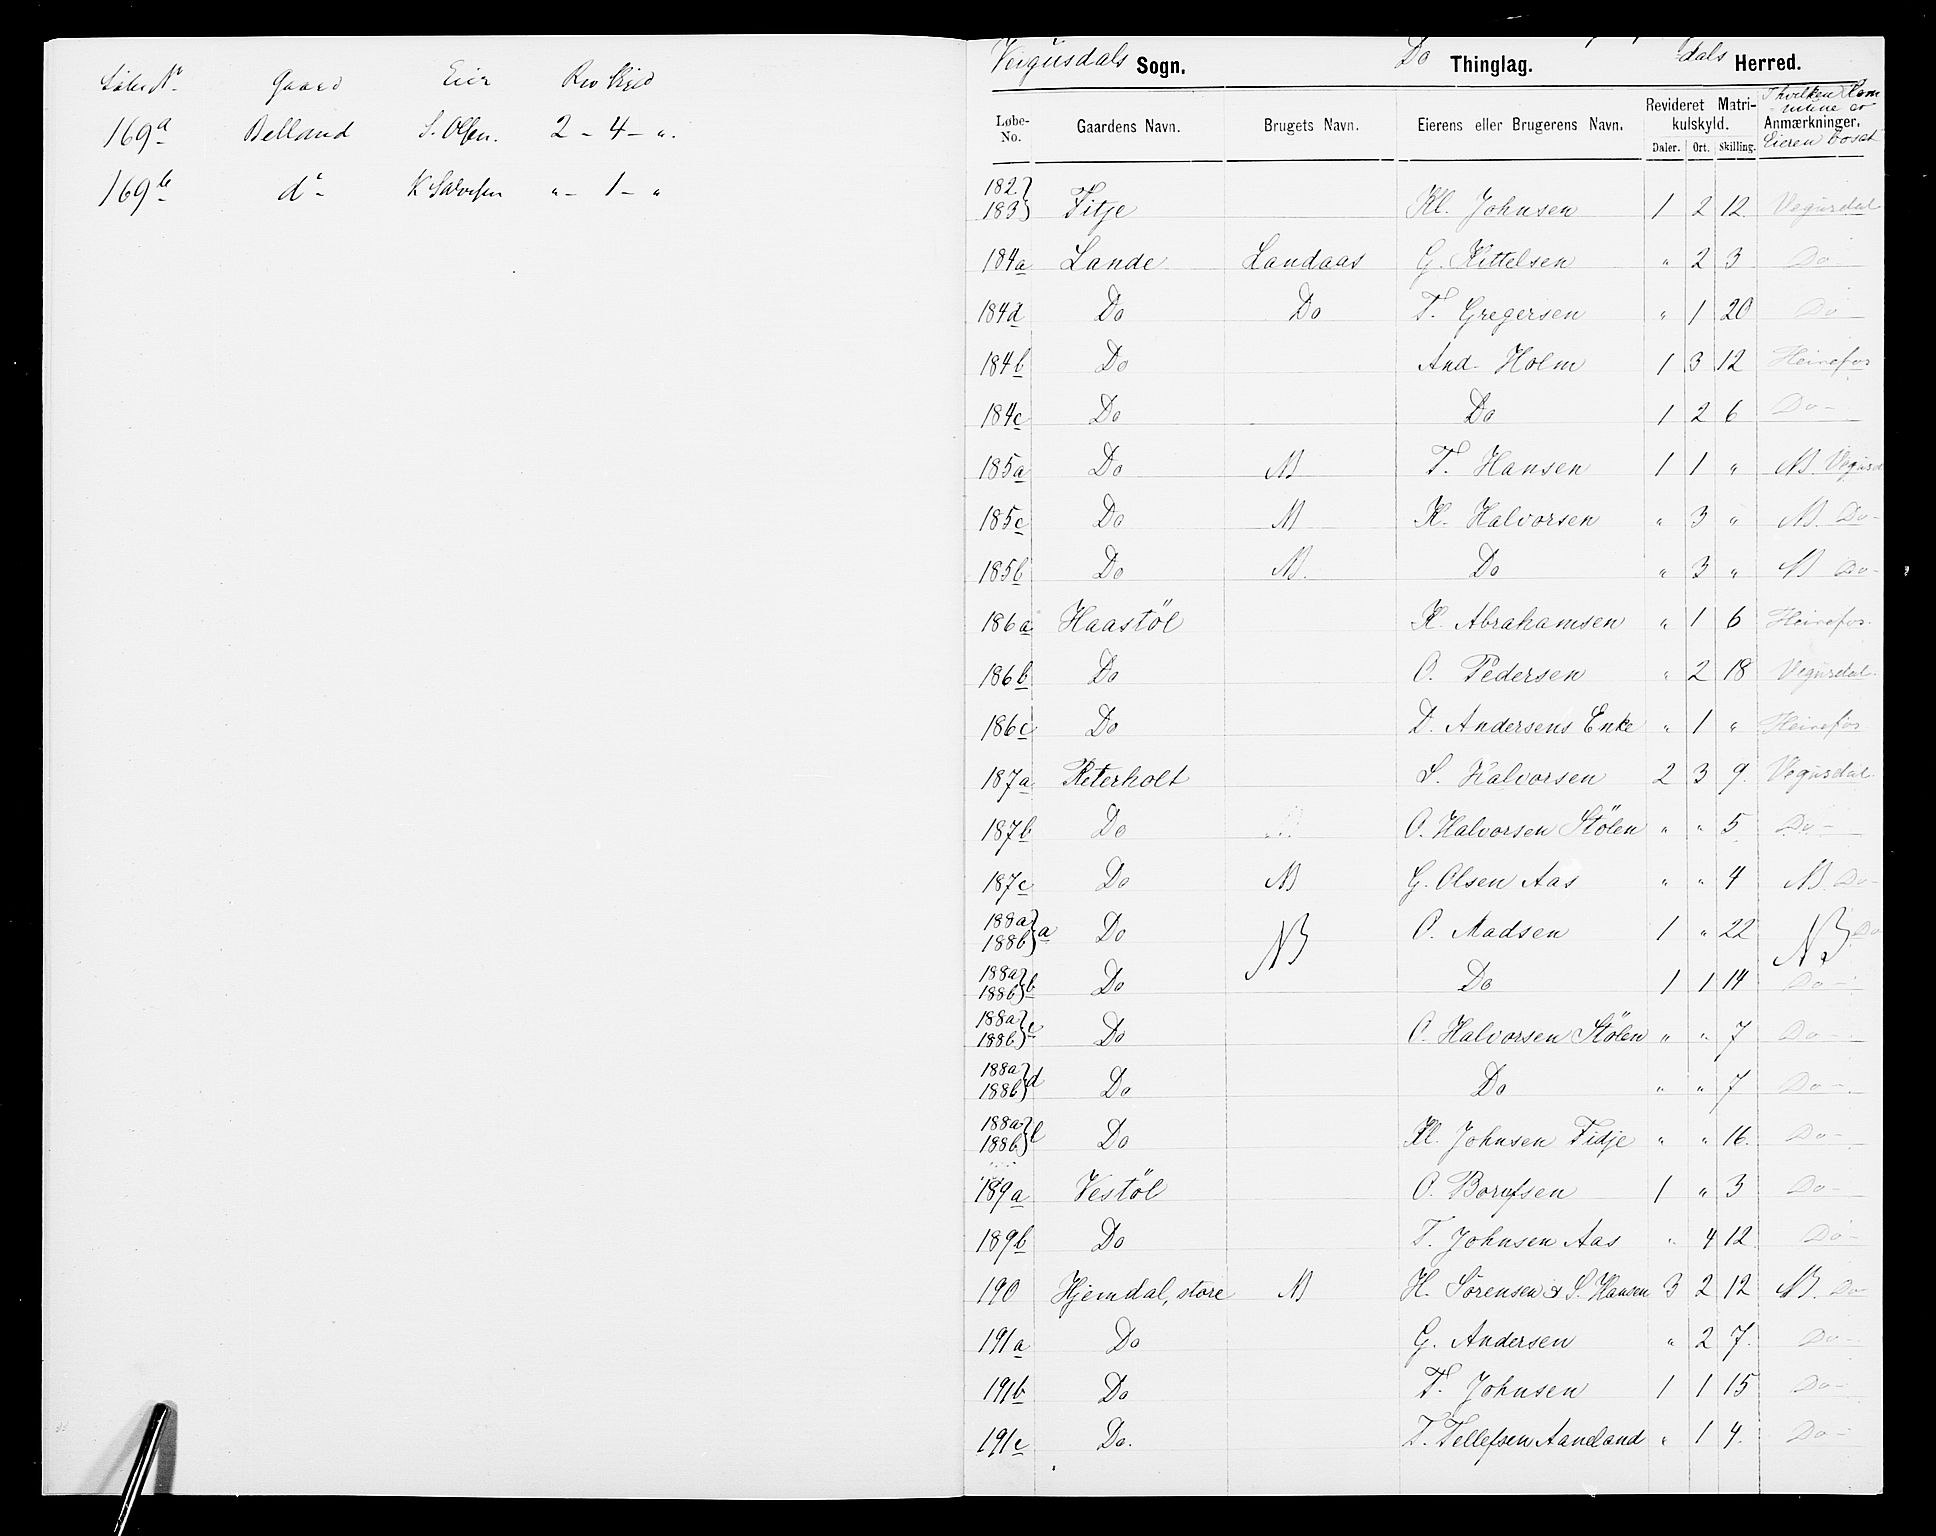 Løbe Nº. Gaard Eier Rev Skjld
169a Belland S. Olsen. 2 - 4 - ".
169b dº- K Salvesen " - 1 - "
Veigusdals Sogn. Do Thinglag. dals Herred.
Løbe-No. Gaardens Navn. Brugets Navn. Eierens eller Brugerens Navn. Revideret Matrikulskyld. Daler. Ort. Skilling. Anmærkninger. I hvilken Kommune er Eieren bosat
182 183 } Fitje Kl. Johnsen 1 2 12 Vegusdal
184a Lande Landaas G. Kittelsen " 2 3 Do
184d Do Do T. Gregersen " 1 20 Do
184b Do And. Holm 1 3 12 Heirefos
184c Do Do 1 2 6 Do -
185a Do NB T. Hansen 1 1 " NB Vegusd
185c Do NB K. Halvorsen " 3 " NB. Do -
185b Do NB. Do " 3 " NB Do -
186a Haastöl K. Abrahamsen " 1 6 Heirefos.
186b Do O. Pedersen " 2 18 Vegusdal.
186c Do D. Andersens Enke " 1 " Heirefos
187a Reterholt S. Halvorsen 2 3 9. Vegusdal.
187b Do O. Halvorsen Stölen " " 5 Do -
187c Do NB G. Olsen Aas " " 4 NB. Do -
188a 188b } a Do NB O. Madsen 1 " 22 NB Do
188a 188b } b Do Do 1 1 14 Do -
188a 188b } c Do O. Halvorsen Stölen " " 7 Do -
188a 188b } d Do Do " " 7 Do -
188a 188b } e Do Kl. Johnsen Fidje " " 16. Do -
189a Vestöl O. Borufsen 1 " 3 Do -
189b Do T. Johnsen Aas " 4 12 Do -
190 Hjemdal, store NB H. Sörensen & S. Hansen 3 2 12 NB. Do
191a Do G. Andersen " 2 7. Do -
191b Do T. Johnsen 1 1 15 Do -
191c Do. T. Tellefsen Aaneland " 1 4. Do -